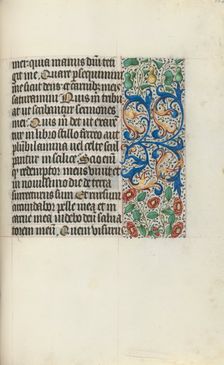 mei: quia manus dñi teti
git me. Quare persequimini
me sicut deus: et carnib3 meis
saturamini. Quis michi tribu
at ut scribantur sermones
mei. Quis michi det ut exarẽ
tur in libro stilo ferreo aut
plũbi lamina vel celte scul
pantur in silice. Scio enim
quod redemptor meus vivit et
in novissimo die de terra
surrecturus sum. Et rursum
circũdabor pelle mea et in
carne mea videbo deũ salva
torem meũ. Quem visurus